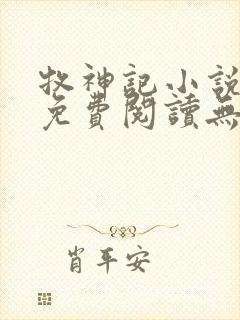 牧神记小説
免費閱讀無
肖平安